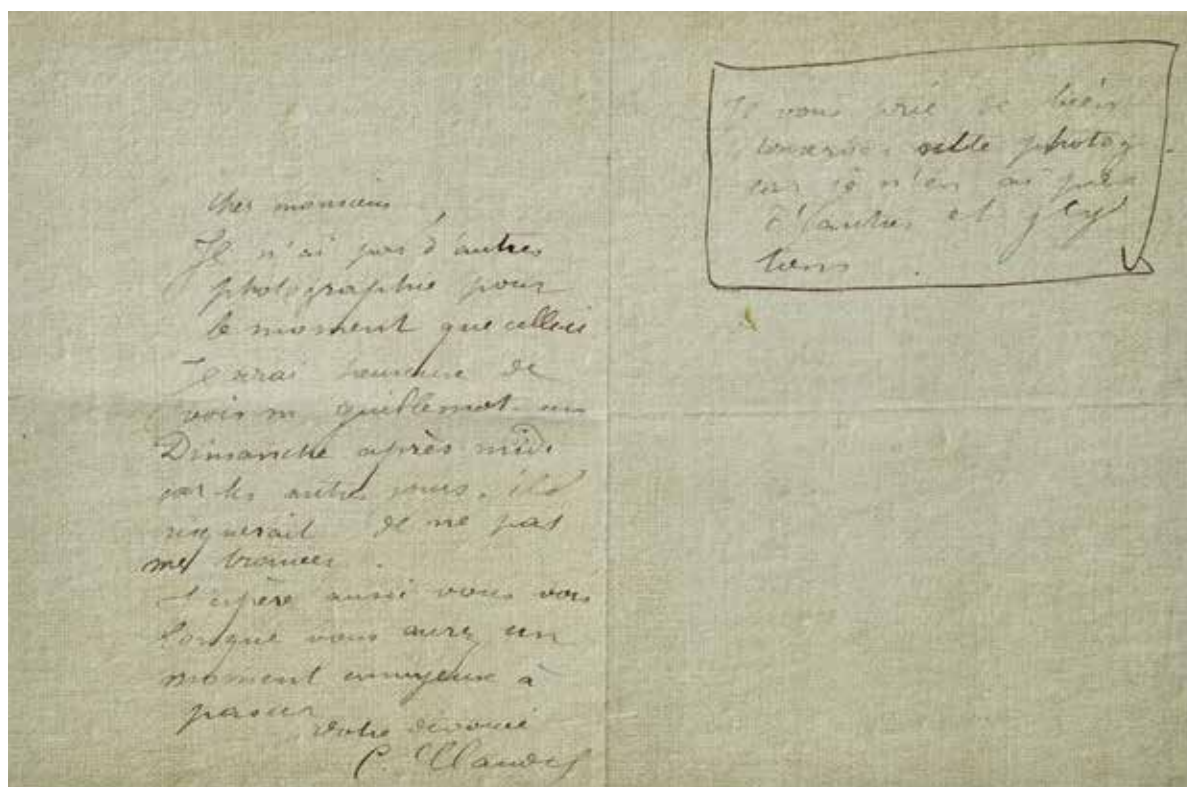 cher monsieur
Je n'ai pas d'autres
photographie pour
le moment que celleci
Je serai heureuse de
voir m. Guillemot un
Dimanche après midi
car les autres jours, il
risquerait de ne pas
me trouver.
J'espère aussi vous voir
lorsque vous aurez un
moment ennuyeux à
passer
votre dévouée
C. Claudel
Je vous prie de bien
conserver cette photog.
car je n'en ai pas
d'autres et j'y
tiens.